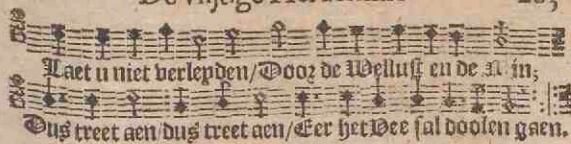 Laet u niet verleyden / Door de Wellust en de Min;
Dus treet aen / dus treet aen / Eer het Vee sal doolen gaen.